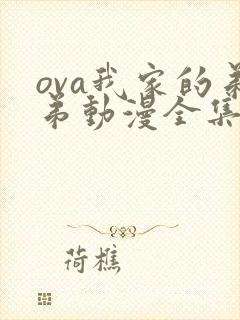 ova我家的弟
弟動漫全集
荷樵